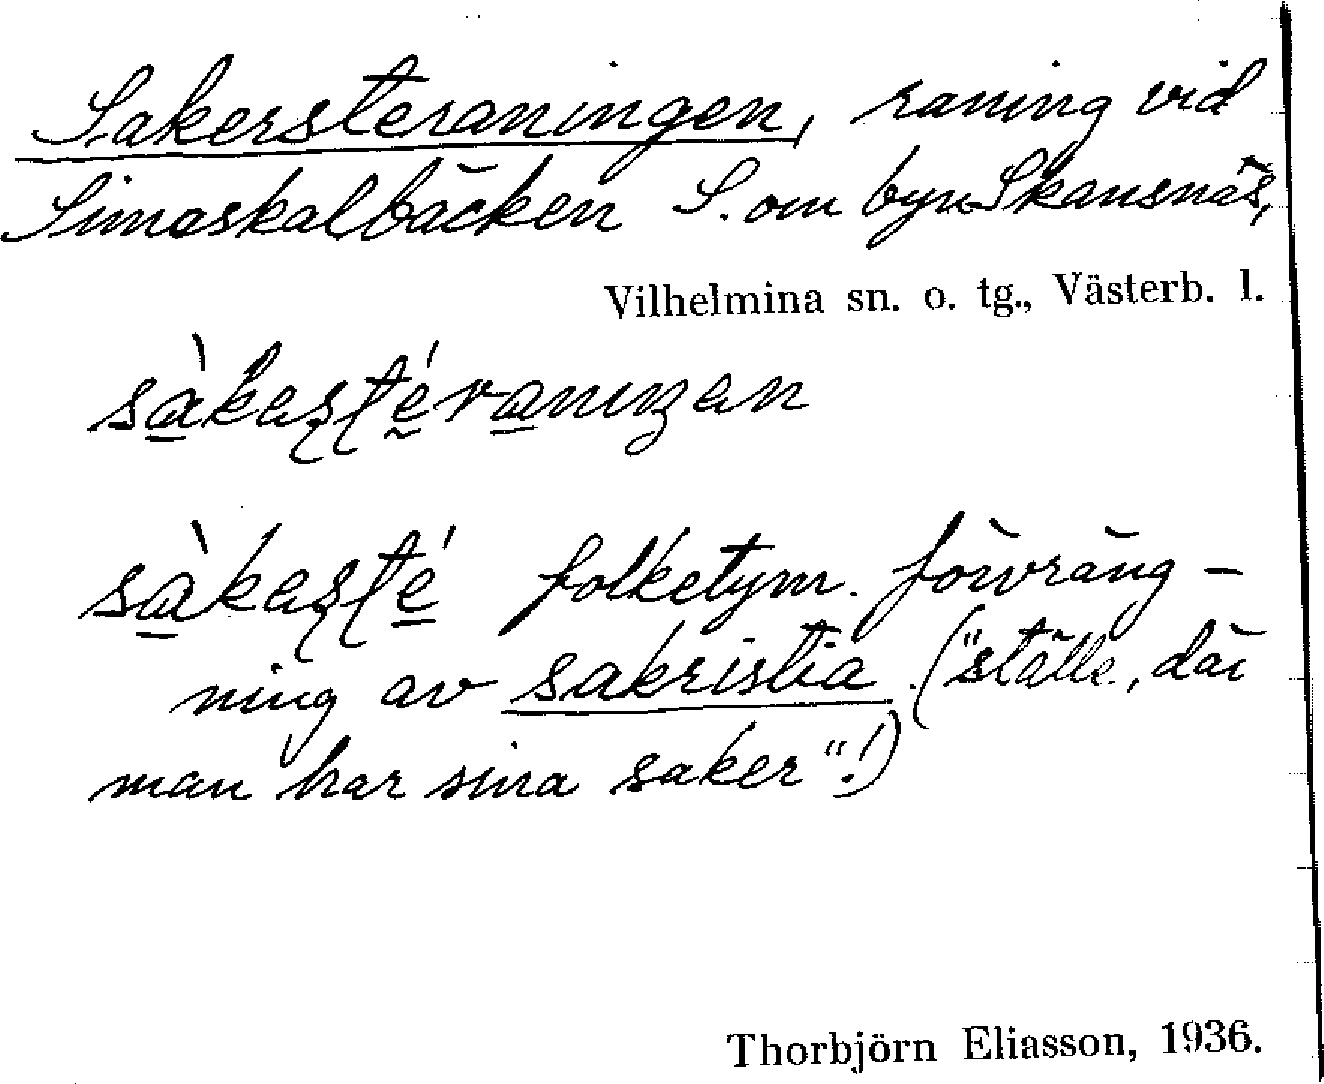 Sakersteraningen, raning vid
Simoskalbäcken S. om byn Skansnäs,
Vilhelmina sn. o. tg., Västerb. l.
folketym. förvräng-
ning av sakristia ("ställe, där
man har sina saker"!)
Thorbjörn Eliasson, 1936.